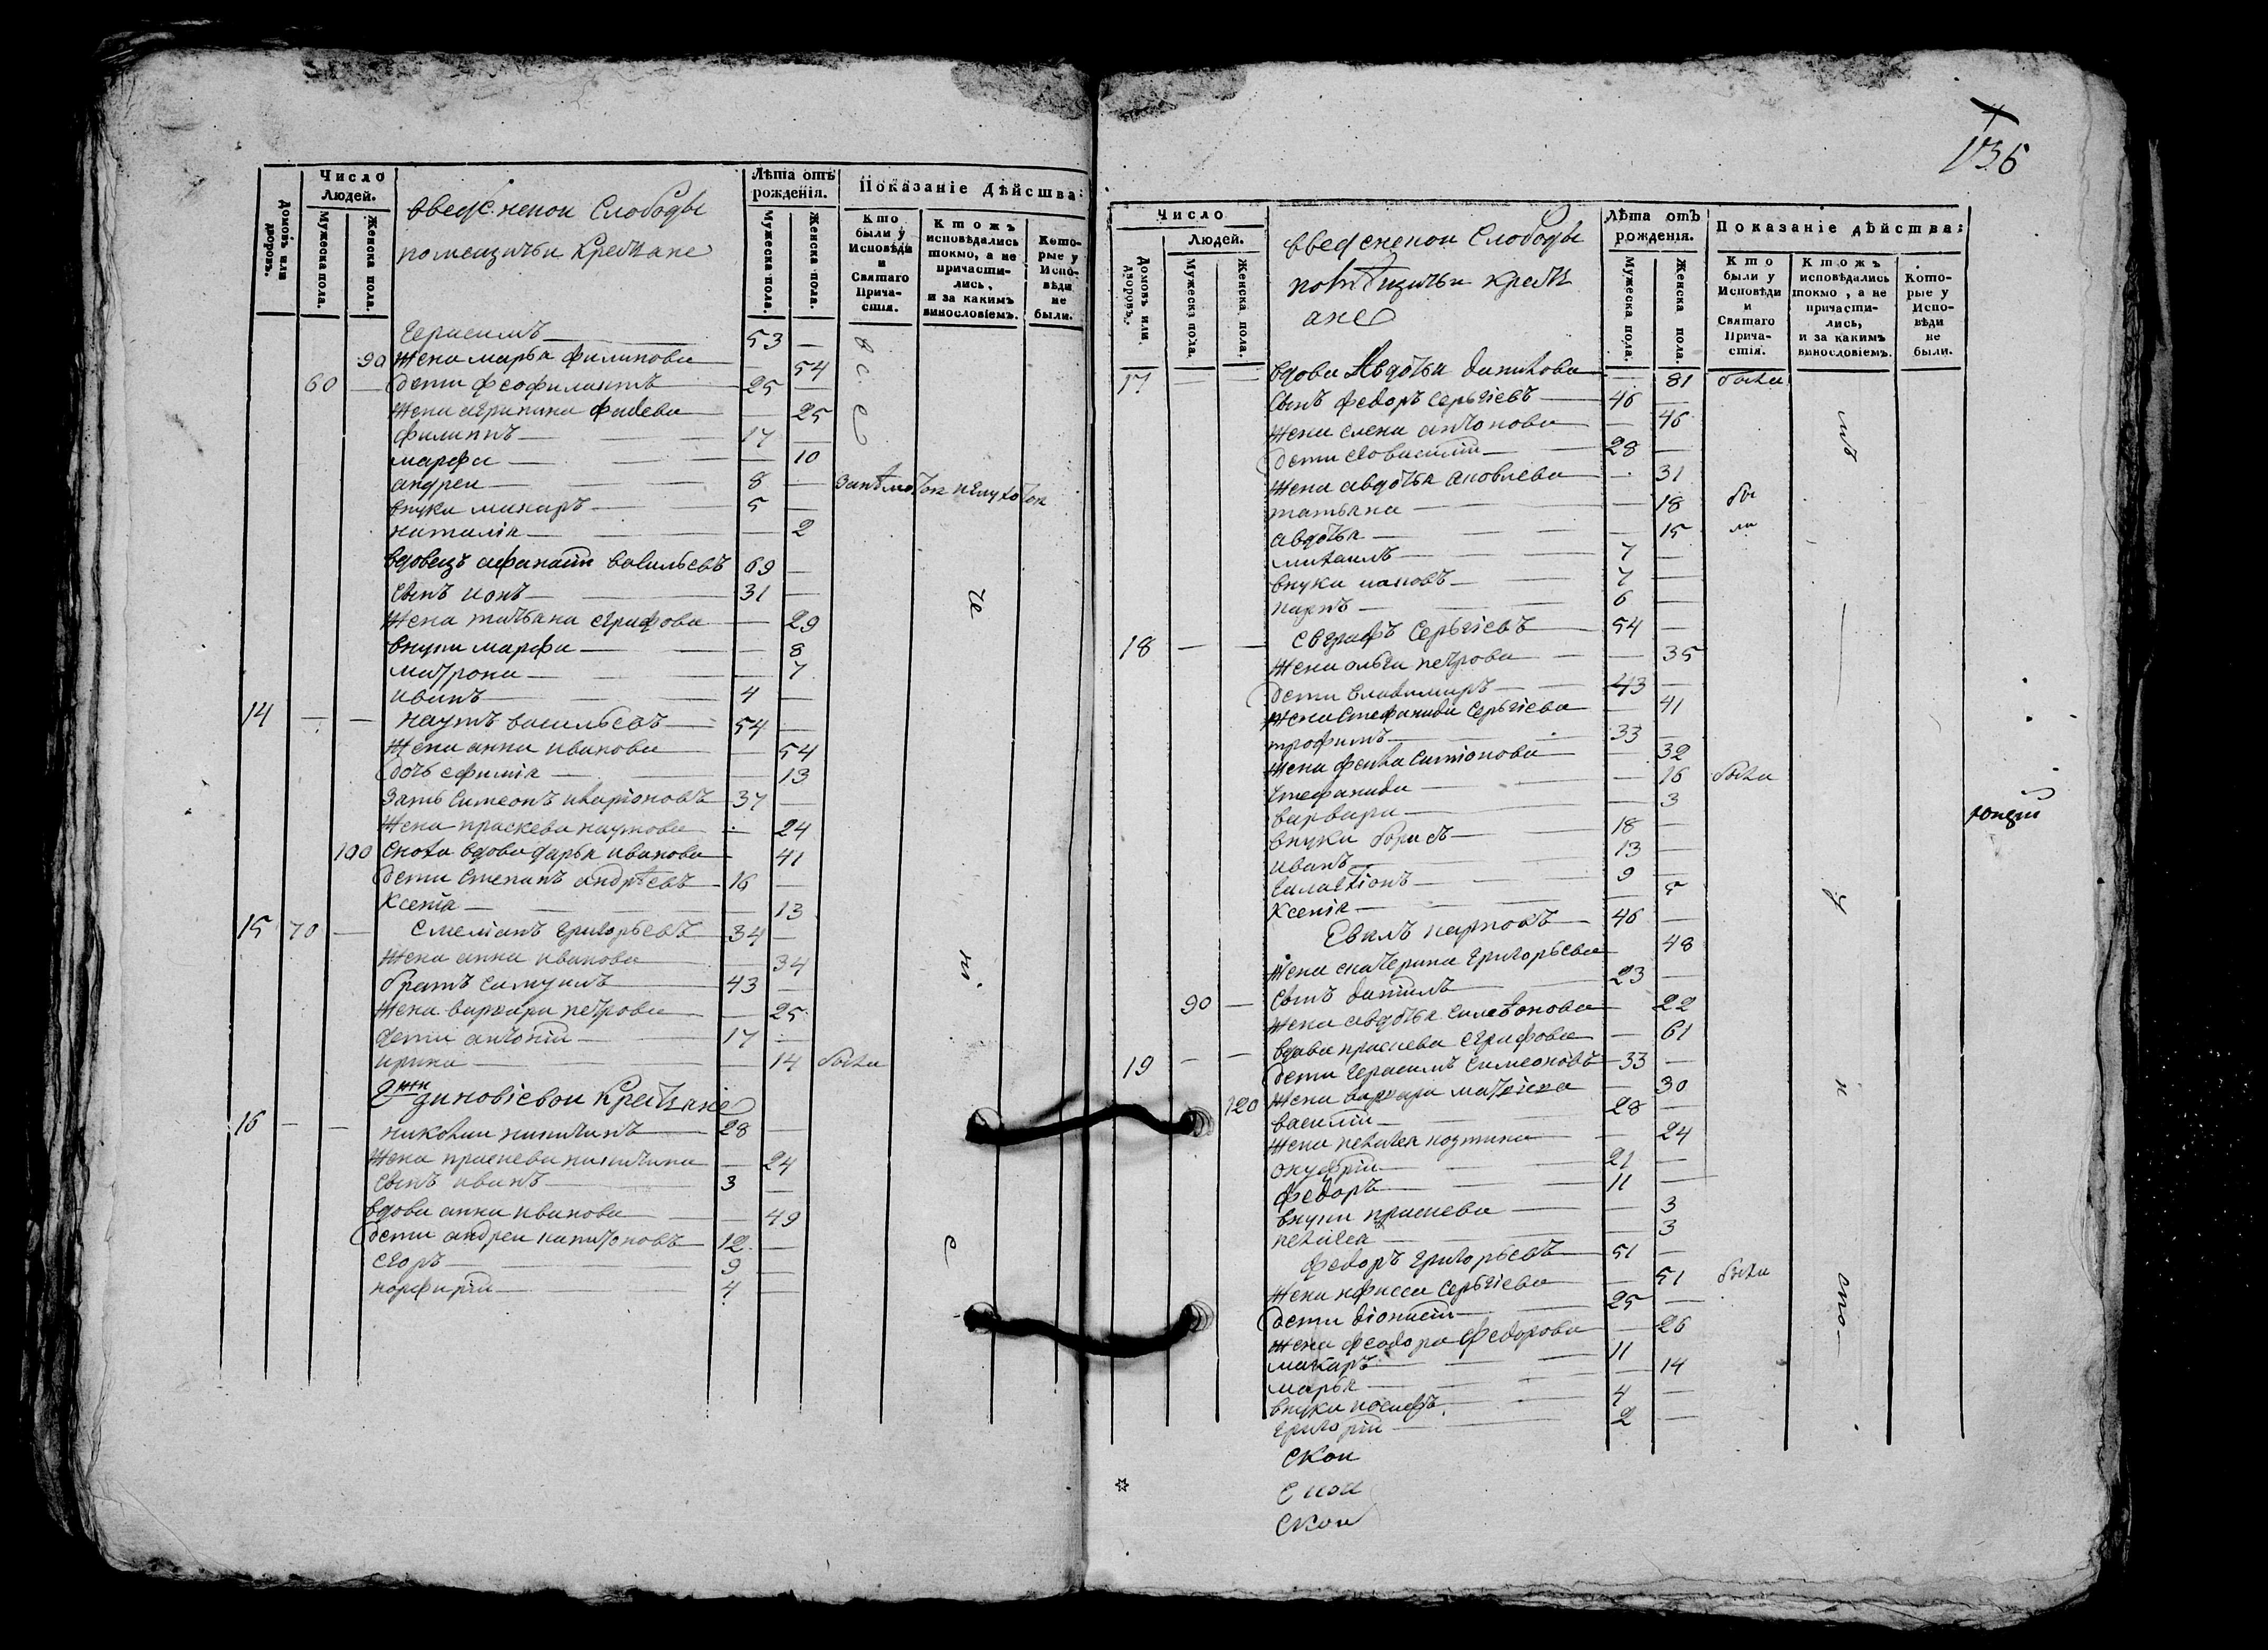 Число
Людей.
Домовъ или дворовъ.
Мужеска пола.
Женска пола.
введенскои слободы
помещичьи крестьяне
Лѣта отъ рожденія.
Мужеска пола.
Женска пола.
Показаніе дѣйства:
Кто были у Исповѣди и Святаго Причастія.
Ктожъ исповѣдались токмо, а не причастились, и за какимъ винословіемъ.
Которые у Исповѣди не были.
Герасимъ 53 —
90 жена марья филипова — 54
60 — дети феофилактъ 25
жена агрипина фадева — 25
филиппъ 17 —
марфа — 10
андреи 8 —
внуки макаръ 5 —
наталія — 2
вдовецъ афанасіи васильевъ 69 —
сынъ іонъ 31 —
жена татьяна еграфова — 29
внуки марфа — 8
матрона — 7
иванъ 4 —
14 — — наумъ васильевъ 54 —
жена анна иванова — 54
дочь ефимія — 13
зять симеонъ иларіоновъ 37 —
жена праскева наумова — 24
100 сноха вдова дарья иванова — 41
дети степанъ андрѣевъ 16 —
ксенія — 13
15 70 — емеліанъ григорьевъ 34 —
жена анна иванова — 34
братъ самуилъ 43 —
жена варвара петрова — 25
дети антоніи 17 —
ирина — 14 была
крестьяне
16 — — 28 —
жена праскева — 24
сынъ иванъ 3 —
вдова анна иванова — 49
дети андреи капитоновъ 12 —
егоръ 9 —
порфиріи 4 —
136
Число
Людей.
Домовъ или дворовъ.
Мужеска пола.
Женска пола.
введенскои слободы
помѣщичьи кресть
яне
Лѣта отъ рожденія.
Мужеска пола.
Женска пола.
Показаніе дѣйства:
Кто были у Исповѣди и Святаго Причастія.
Ктожъ исповѣдались токмо, а не причастились, и за какимъ винословіемъ.
Которые у Исповѣди не были.
17 — — вдова Авдотья данилова — 81 была
сынъ федоръ сергіевъ 46 —
жена елена антонова — 46
дети василіи 28 —
жена авдотья яковлева — 31
татьяна — 18 бы
авдотья — 15 ли
михаилъ 7 —
внуки іаковъ 7 —
карпъ 6 —
18 — — евграфъ сергіевъ 54 —
жена ольга петрова — 35
дети владимиръ 43 —
жена стефанида сергіева — 41
трофимъ 33 —
жена фекла симіонова — 32
стефанида — 16 была
варвара — 3
внуки борисъ 18 —
иванъ 13 —
галактіонъ 9 —
ксенія — 5
карповъ 46 —
жена екатерина григорьева — 48
90 — сынъ даніилъ 23 —
жена авдотья симеонова — 22
вдова праскева еграфова — 61
19 — — дети герасимъ симеоновъ 33 —
120 жена варвара — 30
василіи 28 —
жена пелагея козмина — 24
онуфріи 21 —
федоръ 11 —
внуки праскева — 3
пелагея — 3
федоръ григорьевъ 51 —
жена анфиса сергіева — 51 была
дети діонисіи 25 —
жена феодора федорова — 26
макаръ 11 —
марья — 14
внуки іосифъ 4 —
григоріи 2 —
скои
скои
скои